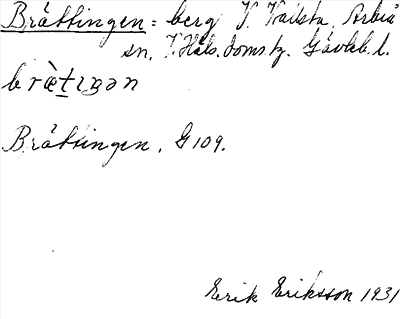 Brättingen = berg V. Valsta, Arbrå
sn, V. Häls. doms tg. Gävleb. l.
bræ̀tıŋən
Brättingen, G 109.
Erik Eriksson 1931